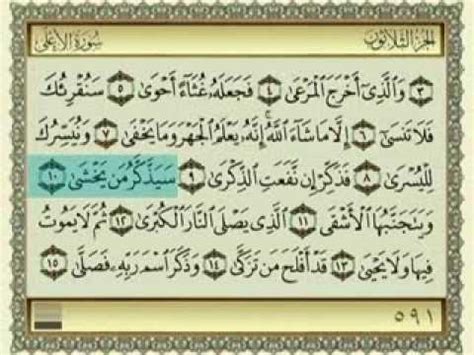 الجزء الثلاثون
سورة الأعلى
٣ وَالَّذِىٓ أَخْرَجَ الْمَرْعَىٰ ٤ فَجَعَلَهُۥ غُثَآءً أَحْوَىٰ ٥ سَنُقْرِئُكَ
فَلَا تَنسَىٰٓ ٦ إِلَّا مَا شَآءَ اللَّهُ إِنَّهُۥ يَعْلَمُ الْجَهْرَ وَمَا يَخْفَىٰ ٧ وَنُيَسِّرُكَ
لِلْيُسْرَىٰ ٨ فَذَكِّرْ إِن نَّفَعَتِ الذِّكْرَىٰ ٩ سَيَذَّكَّرُ مَن يَخْشَىٰ ١٠
وَيَتَجَنَّبُهَا الْأَشْقَى ١١ الَّذِى يَصْلَى النَّارَ الْكُبْرَىٰ ١٢ ثُمَّ لَا يَمُوتُ
فِيهَا وَلَا يَحْيَىٰ ١٣ قَدْ أَفْلَحَ مَن تَزَكَّىٰ ١٤ وَذَكَرَ اسْمَ رَبِّهِۦ فَصَلَّىٰ ١٥
٥٩١